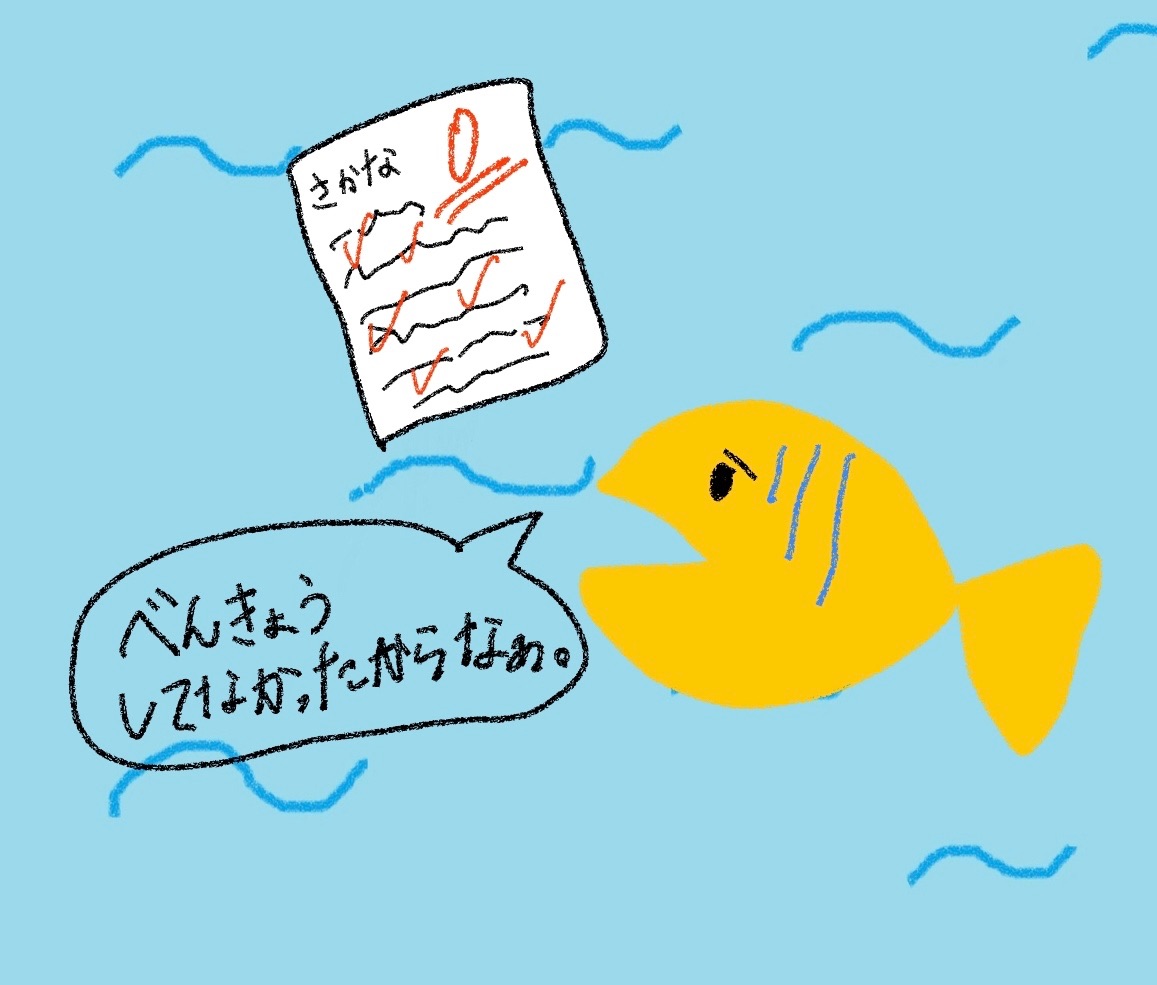 さかな
0
べんきょう
してなかったからなぁ。